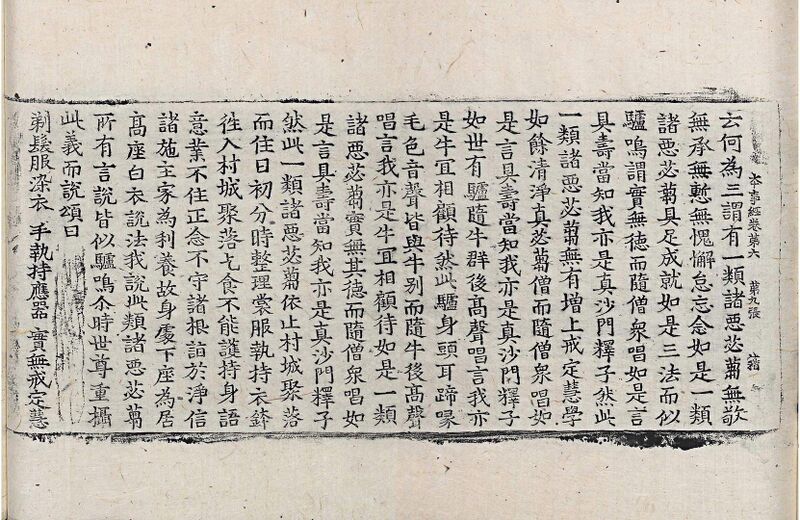 本事經卷第六 第九張
云何為三謂有一類諸惡苾蒭無敬
無承無慙無愧懈怠忘念如是一類
諸惡苾蒭具足成就如是三法而似
驢鳴謂實無德而隨僧衆唱如是言
具壽當知我亦是真沙門釋子然此
一類諸惡苾蒭無有增上戒定慧學
如餘清淨真苾蒭僧而隨僧衆唱如
是言具壽當知我亦是真沙門釋子
如世有驢隨牛群後高聲唱言我亦
是牛宜相顧待然此驢身頭耳蹄喙
毛色音聲皆與牛別而隨牛後高聲
唱言我亦是牛宜相顧待如是一類
諸惡苾蒭實無其德而隨僧衆唱如
是言具壽當知我亦是真沙門釋子
然此一類諸惡苾蒭依止村城聚落
而住日初分時整理裳服執持衣鉢
往入村城聚落乞食不能護持身語
意業不住正念不守諸根詣於淨信
諸施主家為利養故身處下座為居
高座白衣說法我說此類諸惡苾蒭
所有言說皆似驢鳴尒時世尊重攝
此義而說頌曰
剃髮服染衣 手執持應器 實無戒定慧